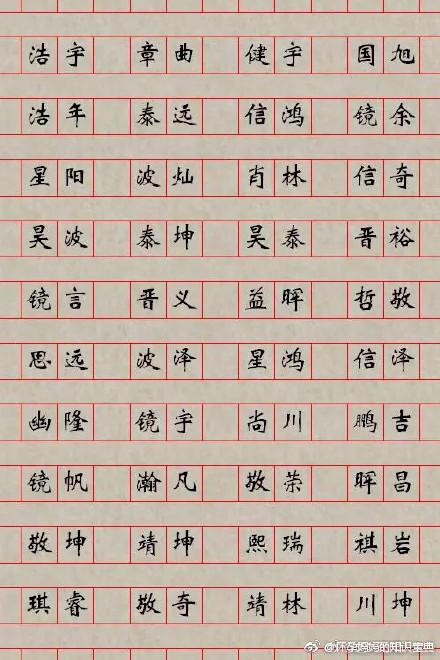 浩宇 章曲 健宇 国旭
浩年 泰远 信鸿 镜余
星阳 波灿 肖林 信奇
昊波 泰坤 昊泰 晋裕
镜言 晋义 益晖 哲敬
思远 波泽 星鸿 信泽
幽隆 镜宇 尚川 鹏吉
镜帆 瀚凡 敬荣 晖昌
敬坤 靖坤 熙瑞 祺岩
琪睿 敬奇 靖林 川坤
@怀孕妈妈的知识宝典